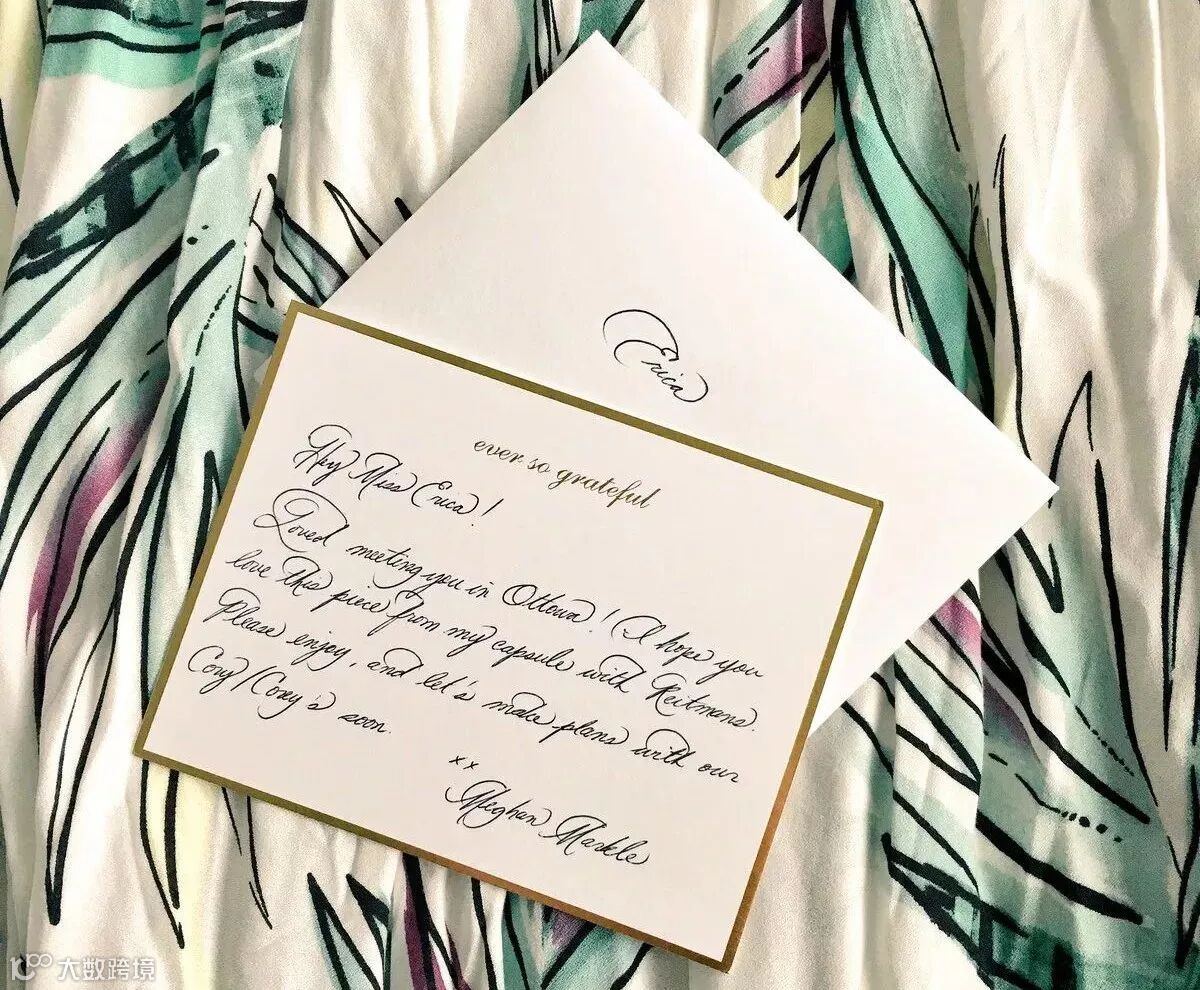 Erica
ever so grateful
Hey Miss Erica!
Loved meeting you in Ottawa! I hope you
love this piece from my capsule with Reitmans.
Please enjoy, and let's make plans with our
Cory/Corey's soon.
xx
Meghan Markle
大数跨境